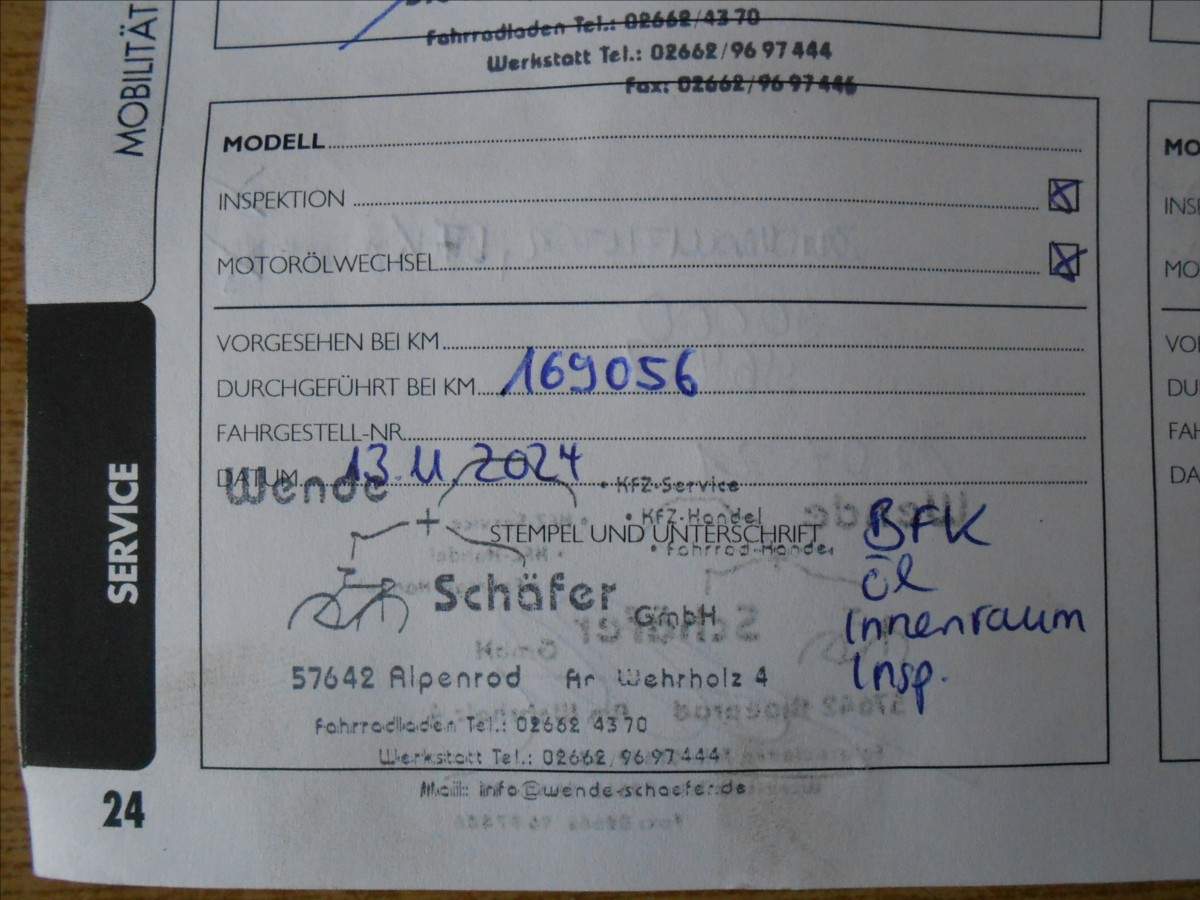 Fahrradladen Tel.: 02662/43 70
Werkstatt Tel.: 02662/96 97 444
Fax: 02662/96 97 446
MOBILITÄT
MODELL
INSPEKTION
MOTORÖLWECHSEL
VORGESEHEN BEI KM
DURCHGEFÜHRT BEI KM 169056
FAHRGESTELL-NR.
DATUM 13.11.2024
Wende
• KFZ-Service
• KFZ-Handel
STEMPEL UND UNTERSCHRIFT
• Fahrrad-Handel
+
Schäfer
GmbH
57642 Alpenrod Am Wehrholz 4
Fahrradladen Tel.: 02662 43 70
Werkstatt Tel.: 02662/96 97 444
Mail: info@wende-schaefer.de
BFK
Öl
Innenraum
Insp.
SERVICE
24
MO
INSP
MO
VO
DU
FAH
DA